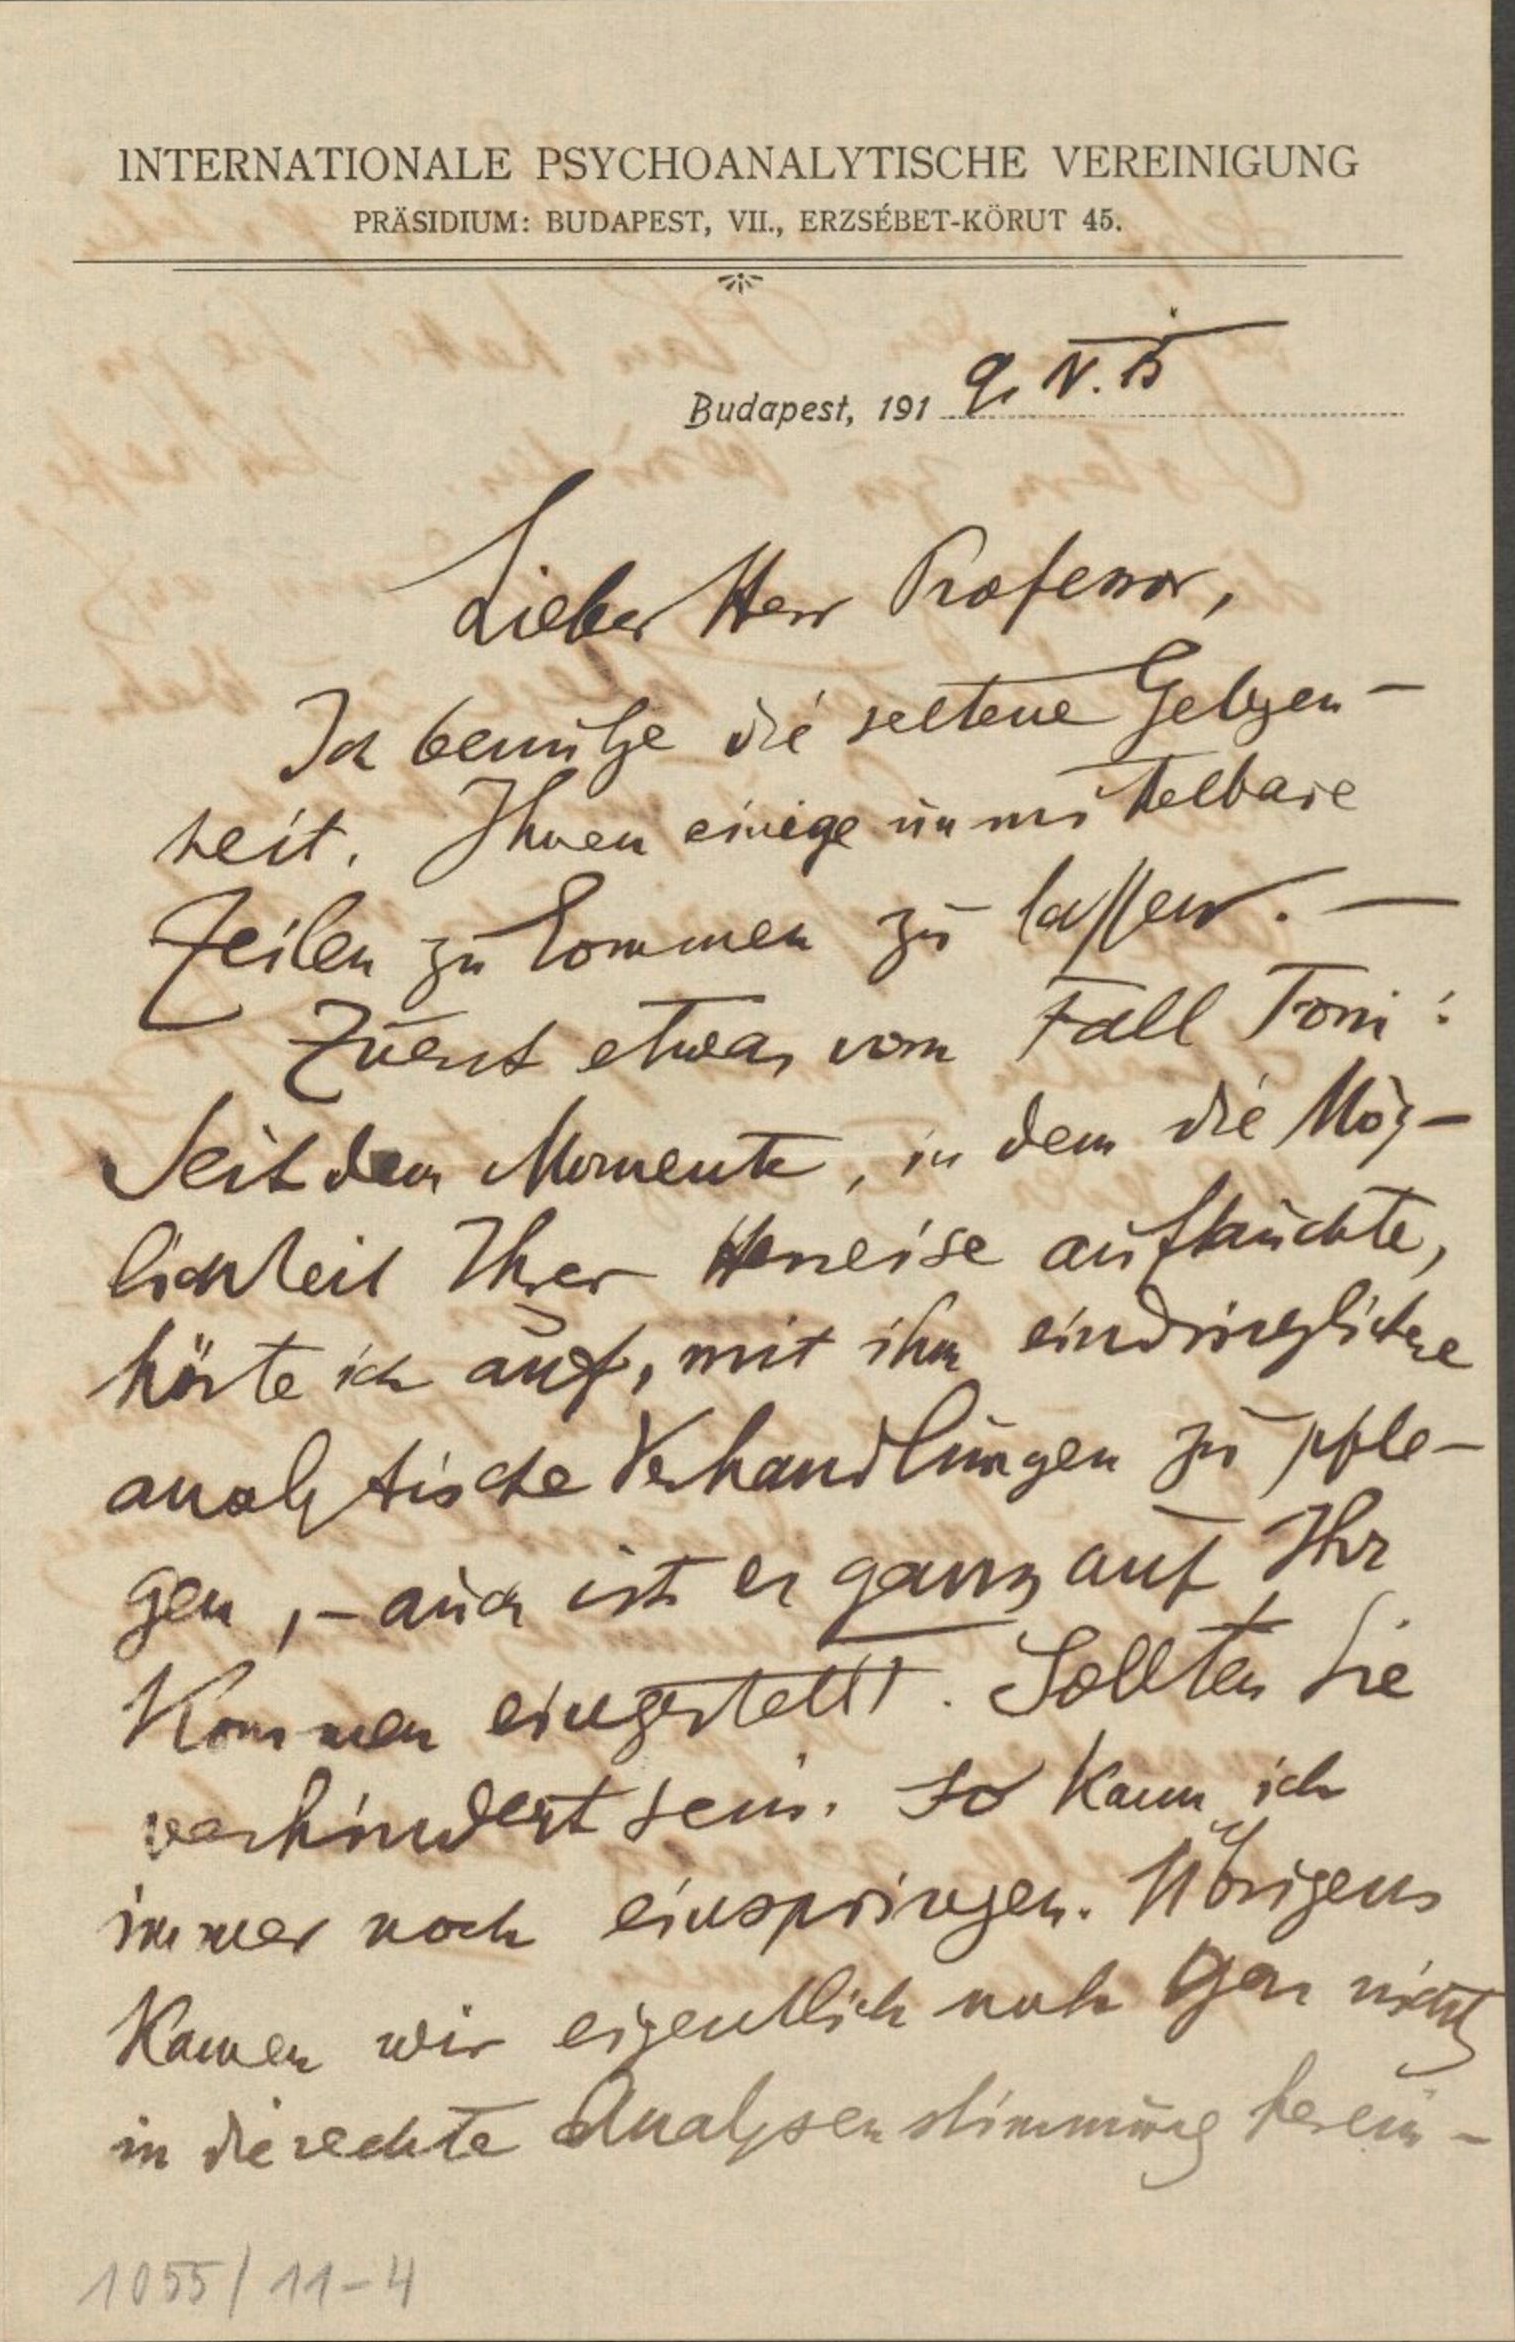 INTERNATIONALE PSYCHOANALYTISCHE VEREINIGUNG
PRÄSIDIUM: BUDAPEST, VII., ERZSÉBET-KÖRUT 45.
Budapest, 1919, IV. 15
Lieber Herr Professor,
Ich benütze die seltene Gelegen-
heit, Ihnen einige unmittelbare
Zeilen zukommen zu lassen. —
Zuerst etwas vom Fall Toni:
Seit dem Momente, in dem die Mög-
lichkeit Ihrer Herreise auftauchte,
hörte ich auf, mit ihm eindringlichere
analytische Verhandlungen zu pfle-
gen, – auch ist er ganz auf Ihr
Kommen eingestellt. Sollten Sie
verhindert sein, so kann ich
immer noch einspringen. Übrigens
kamen wir eigentlich noch gar nicht
in die rechte Analysenstimmung herein-
1055/11-4